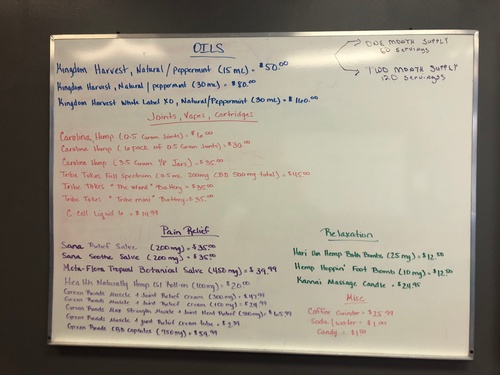 OILS
Kingdom Harvest, Natural/peppermint (15 mL) = $50.00
Kingdom Harvest, Natural/peppermint (30 mL) = $80.00
Kingdom Harvest White Label XO, Natural/Peppermint (30 mL) = $160.00
ONE MONTH SUPPLY
60 servings
TWO MONTH SUPPLY
120 servings
Joints, Vapes, Cartridges
Carolina Hemp (0.5 Gram Joints) = $6.00
Carolina Hemp (6 pack of 0.5 Gram Joints) = $30.00
Carolina Hemp (3.5 Gram 1/8 Jars) = $35.00
Tribe Takes Full Spectrum (0.5 mL 200mg CBD 500mg total) = $45.00
Tribe Takes "The Wand" Battery = $35.00
Tribe Takes "Tribe mini" Battery = $35.00
C Cell Liquid 6 = $14.99
Pain Relief
Sana Relief Salve (200 mg) = $35.00
Sana Soothe Salve (200 mg) = $35.00
Meta-Flora Tropical Botanical Salve (450 mg) = $39.99
Health Naturally Hemp Oil Roll-on (100 mg) = $20.00
Green Roads Muscle + Joint Relief Cream (300 mg) = $47.99
Green Roads Muscle + Joint Relief Cream (150 mg) = $29.99
Green Roads Max Strength Muscle + Joint Heat Relief (500 mg) = $65.99
Green Roads Muscle + Joint Relief Cream tube = $3.39
Green Roads CBD Capsules (750 mg) = $54.99
Relaxation
Hari Om Hemp Bath Bombs (25 mg) = $12.00
Hemp Hoppin' Foot Bombs (10 mg) = $12.50
Kanna Massage Candle = $24.95
Misc
Coffee Grinder = $25.99
Soda/water = $1.00
Candy = $1.00